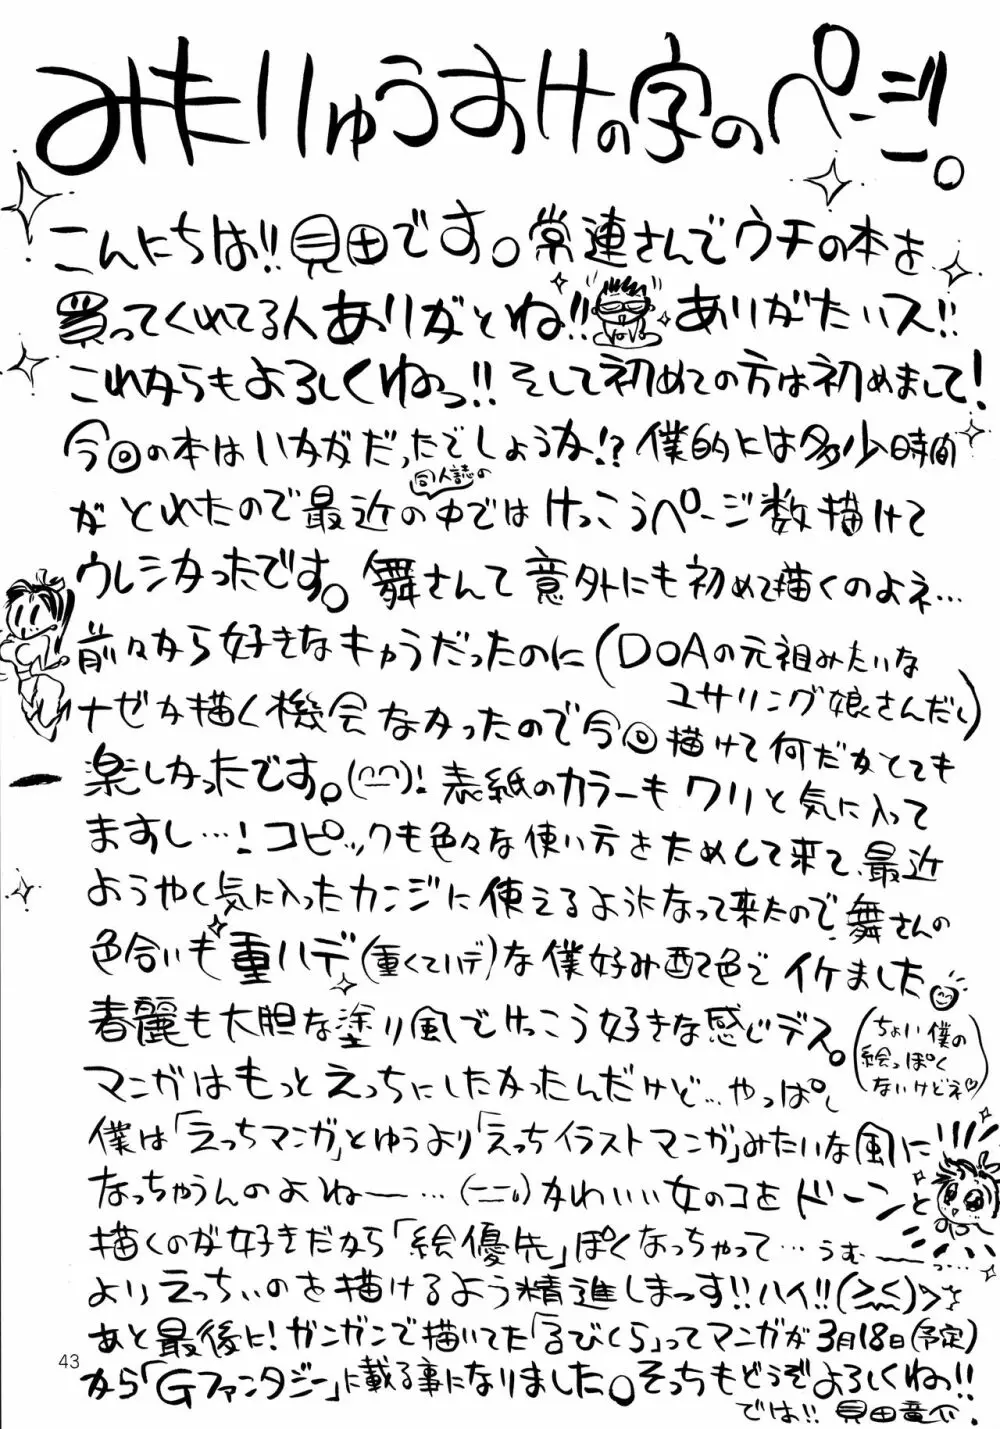 みたりゅうすけの字のページ。
こんにちは!!見田です。常連さんでウチの本を
買ってくれてる人ありがとね!!ありがたいス!!
これからもよろしくねっ!!そして初めての方は初めまして!
今回の本はいかがだったでしょうか!?僕的には多少時間
がとれたので最近の同人誌の中ではけっこうページ数描けて
ウレシかったです。舞さんて意外にも初めて描くのよネ…
前々から好きなキャラだったのに(DOAの元祖みたいな
ユサリング娘さんだし)
ナゼか描く機会なかったので今回描けて何だかとても
楽しかったです。(^^)!表紙のカラーもワリと気に入って
ますし…!コピックも色々な使い方をためして来て、最近
ようやく気に入ったカンジに使えるようになって来たので、舞さんの
色合いも重ハデ(重くてハデ)な僕好み配色でイケました
春麗も大胆な塗り風でけっこう好きな感じデス。
(ちょい僕の
絵っぽく
ないけどネ♡)
マンガはもっとえっちにしたかったんだけど…やっぱし
僕は「えっちマンガ」とゆうより「えっちイラストマンガ」みたいな風に
なっちゃうんのよねー…(ーー;)かわいい女のコをドーンと
描くのが好きだから「絵優先」ぽくなっちゃって…うむー…
よりえっちぃのを描けるよう精進しまっす!!ハイ!!(>_<)ゞ
あと最後に!ガンガンで描いてた「るびくら」ってマンガが3月18日(予定)
から「Gファンタジー」に載る事になりました。そっちもどうぞよろしくねっ!!
では!!見田竜介.
43